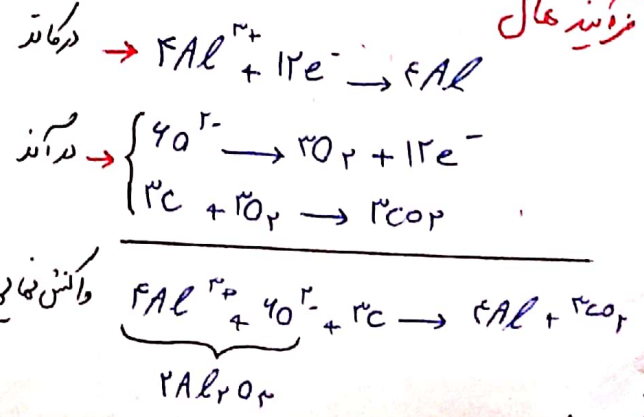 فرآیند هال
در کاتد → ۴Al³⁺ + ۱۲e⁻ → ۴Al
در آند → { ۶O²⁻ → ۳O₂ + ۱۲e⁻
۳C + ۳O₂ → ۳CO₂
واکنش نهایی ۴Al³⁺ + ۶O²⁻ + ۳C → ۴Al + ۳CO₂
۲Al₂O₃